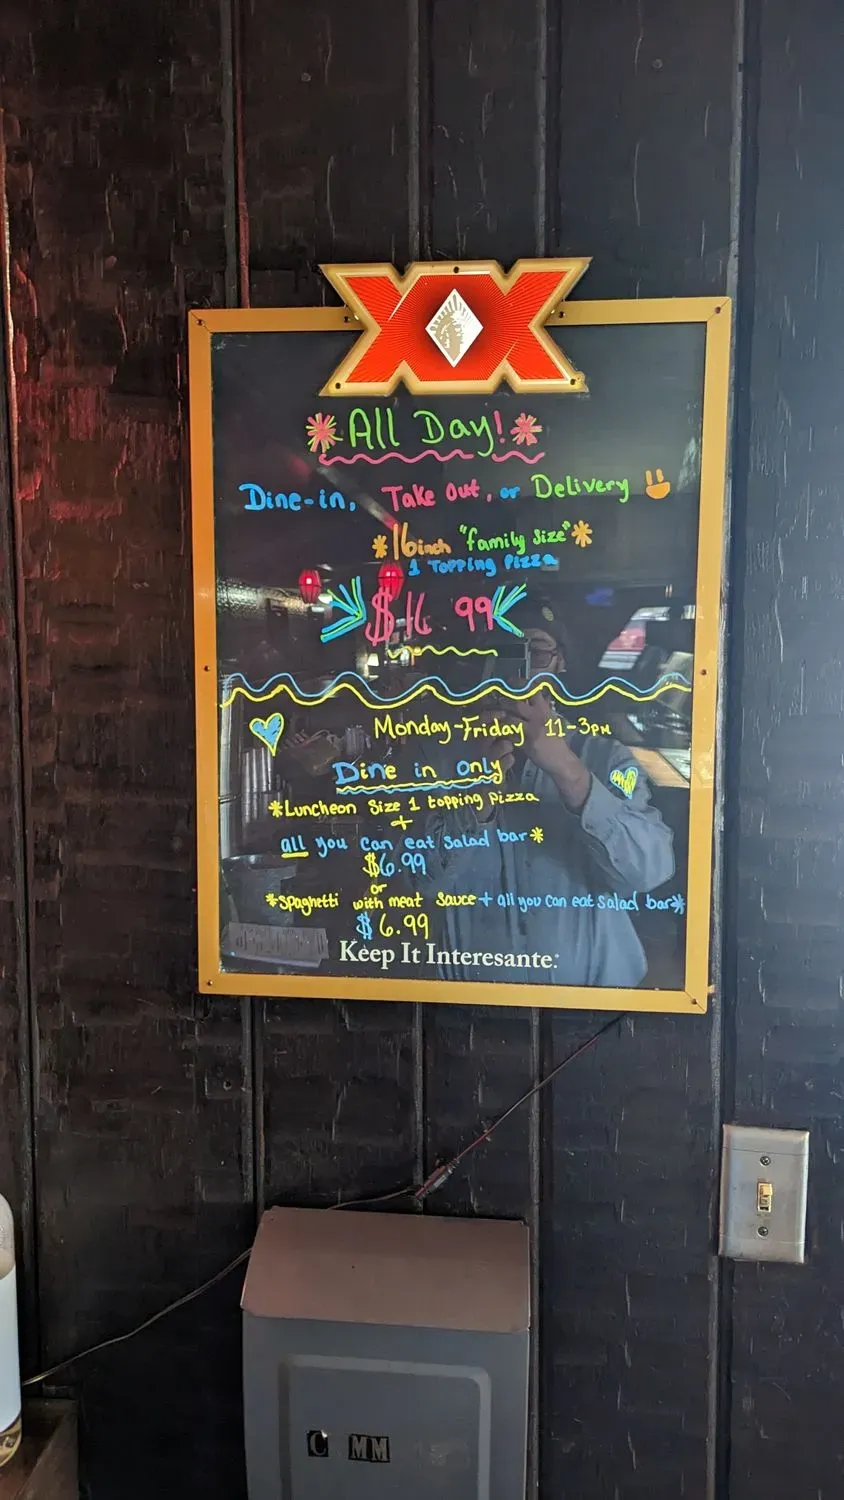 XX
All Day!
Dine-in, Take Out, or Delivery
*16 inch "family size"*
1 Topping Pizza
$16 99
Monday-Friday 11-3PM
Dine in only
*Luncheon Size 1 topping pizza
+
all you can eat salad bar*
$6.99
or
*spaghetti with meat sauce + all you can eat salad bar*
$6.99
Keep It Interesante.
C MM